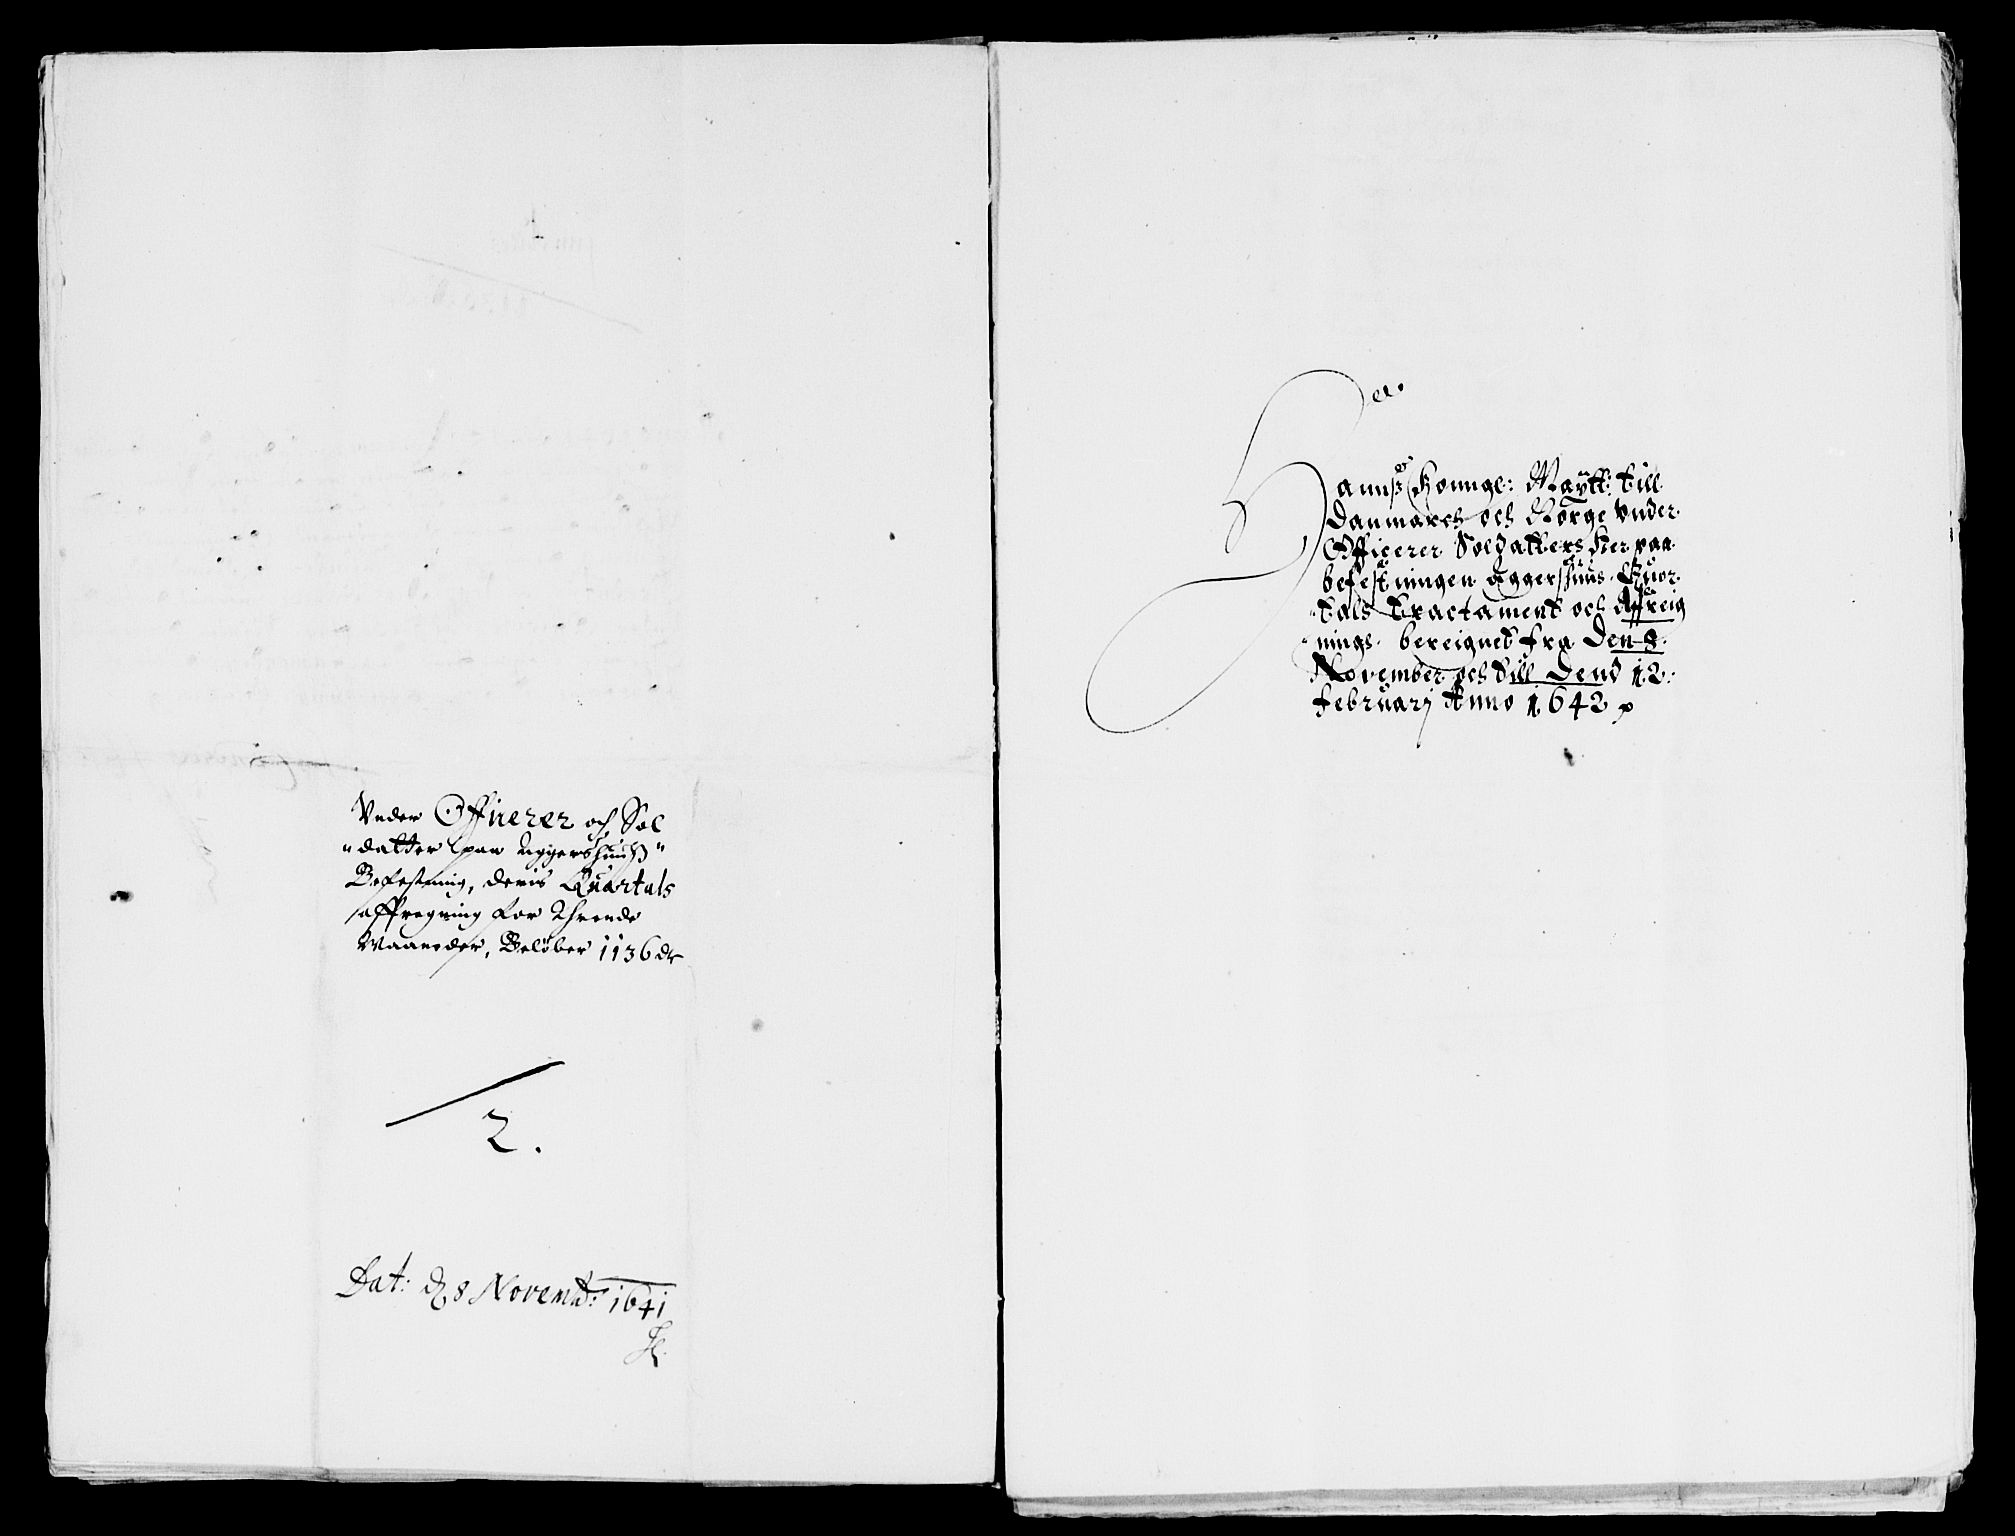 Vnder Officerer och Sol
"datter paa Aggershuuß"
Befestning, deris Quartals
affregning for Thrende
Maaneder, Beløber 1136 dr
2.
Dat: d 8 Novemb: 1641
Hannß Konngl: Maÿtt: till
Danmarch och Norge vnder
Officerer Soldatters her paa
befestningen Aggershuus Quor
tals tractament och Affreig
nings bereignet fra Den 8
November och till Dend 12
februarj Anno 1642